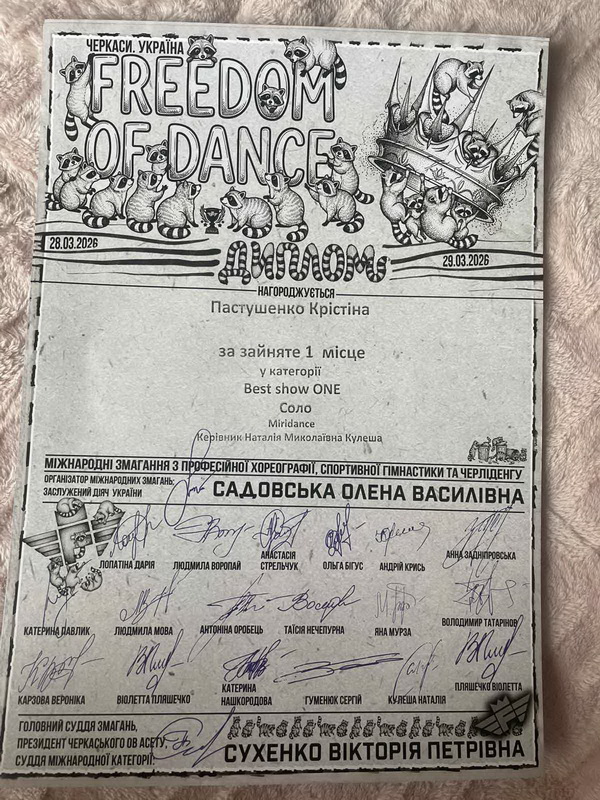 ЧЕРКАСИ, УКРАЇНА
FREEDOM
OF DANCE
28.03.2026
ДИПЛОМ
29.03.2026
НАГОРОДЖУЄТЬСЯ
Пастушенко Крістіна
за зайняте 1 місце
у категорії
Best show ONE
Соло
Miridance
Керівник Наталія Миколаївна Кулеша
МІЖНАРОДНІ ЗМАГАННЯ З ПРОФЕСІЙНОЇ ХОРЕОГРАФІЇ, СПОРТИВНОЇ ГІМНАСТИКИ ТА ЧЕРЛІДЕНГУ
ОРГАНІЗАТОР МІЖНАРОДНИХ ЗМАГАНЬ:
ЗАСЛУЖЕНИЙ ДІЯЧ УКРАЇНИ
САДОВСЬКА ОЛЕНА ВАСИЛІВНА
ЛОПАТІНА ДАРІЯ ЛЮДМИЛА ВОРОПАЙ АНАСТАСІЯ СТРЕЛЬЧУК ОЛЬГА БІГУС АНДРІЙ КРИСЬ АННА ЗАДНІПРОВСЬКА
КАТЕРИНА ПАВЛИК ЛЮДМИЛА МОВА АНТОНІНА ОРОБЕЦЬ ТАЇСІЯ НЕЧЕПУРНА ЯНА МУРЗА ВОЛОДИМИР ТАТАРІНОВ
КАРЗОВА ВЕРОНІКА ВІОЛЕТТА ПЛЯШЕЧКО КАТЕРИНА НАШКОРОДОВА ГУМЕНЮК СЕРГІЙ КУЛЕША НАТАЛІЯ ПЛЯШЕЧКО ВІОЛЕТТА
ГОЛОВНИЙ СУДДЯ ЗМАГАНЬ,
ПРЕЗИДЕНТ ЧЕРКАСЬКОГО ОВ АСЕТУ,
СУДДЯ МІЖНАРОДНОЇ КАТЕГОРІЇ:
СУХЕНКО ВІКТОРІЯ ПЕТРІВНА